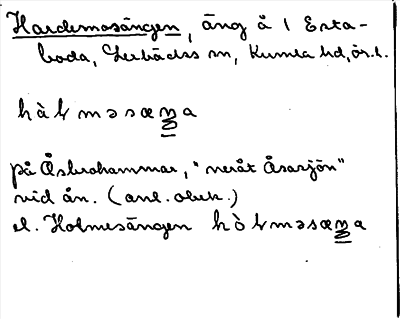 Hardemosängen, äng å 1 Esta-
boda, Lerbäcks sn, Kumla hd, ör. l.
hàɭməsæŋa
på Åsbrohammar, "neråt Åsasjön"
vid ån. (anl. obek.)
el. Holmesängen hòɭməsæŋa